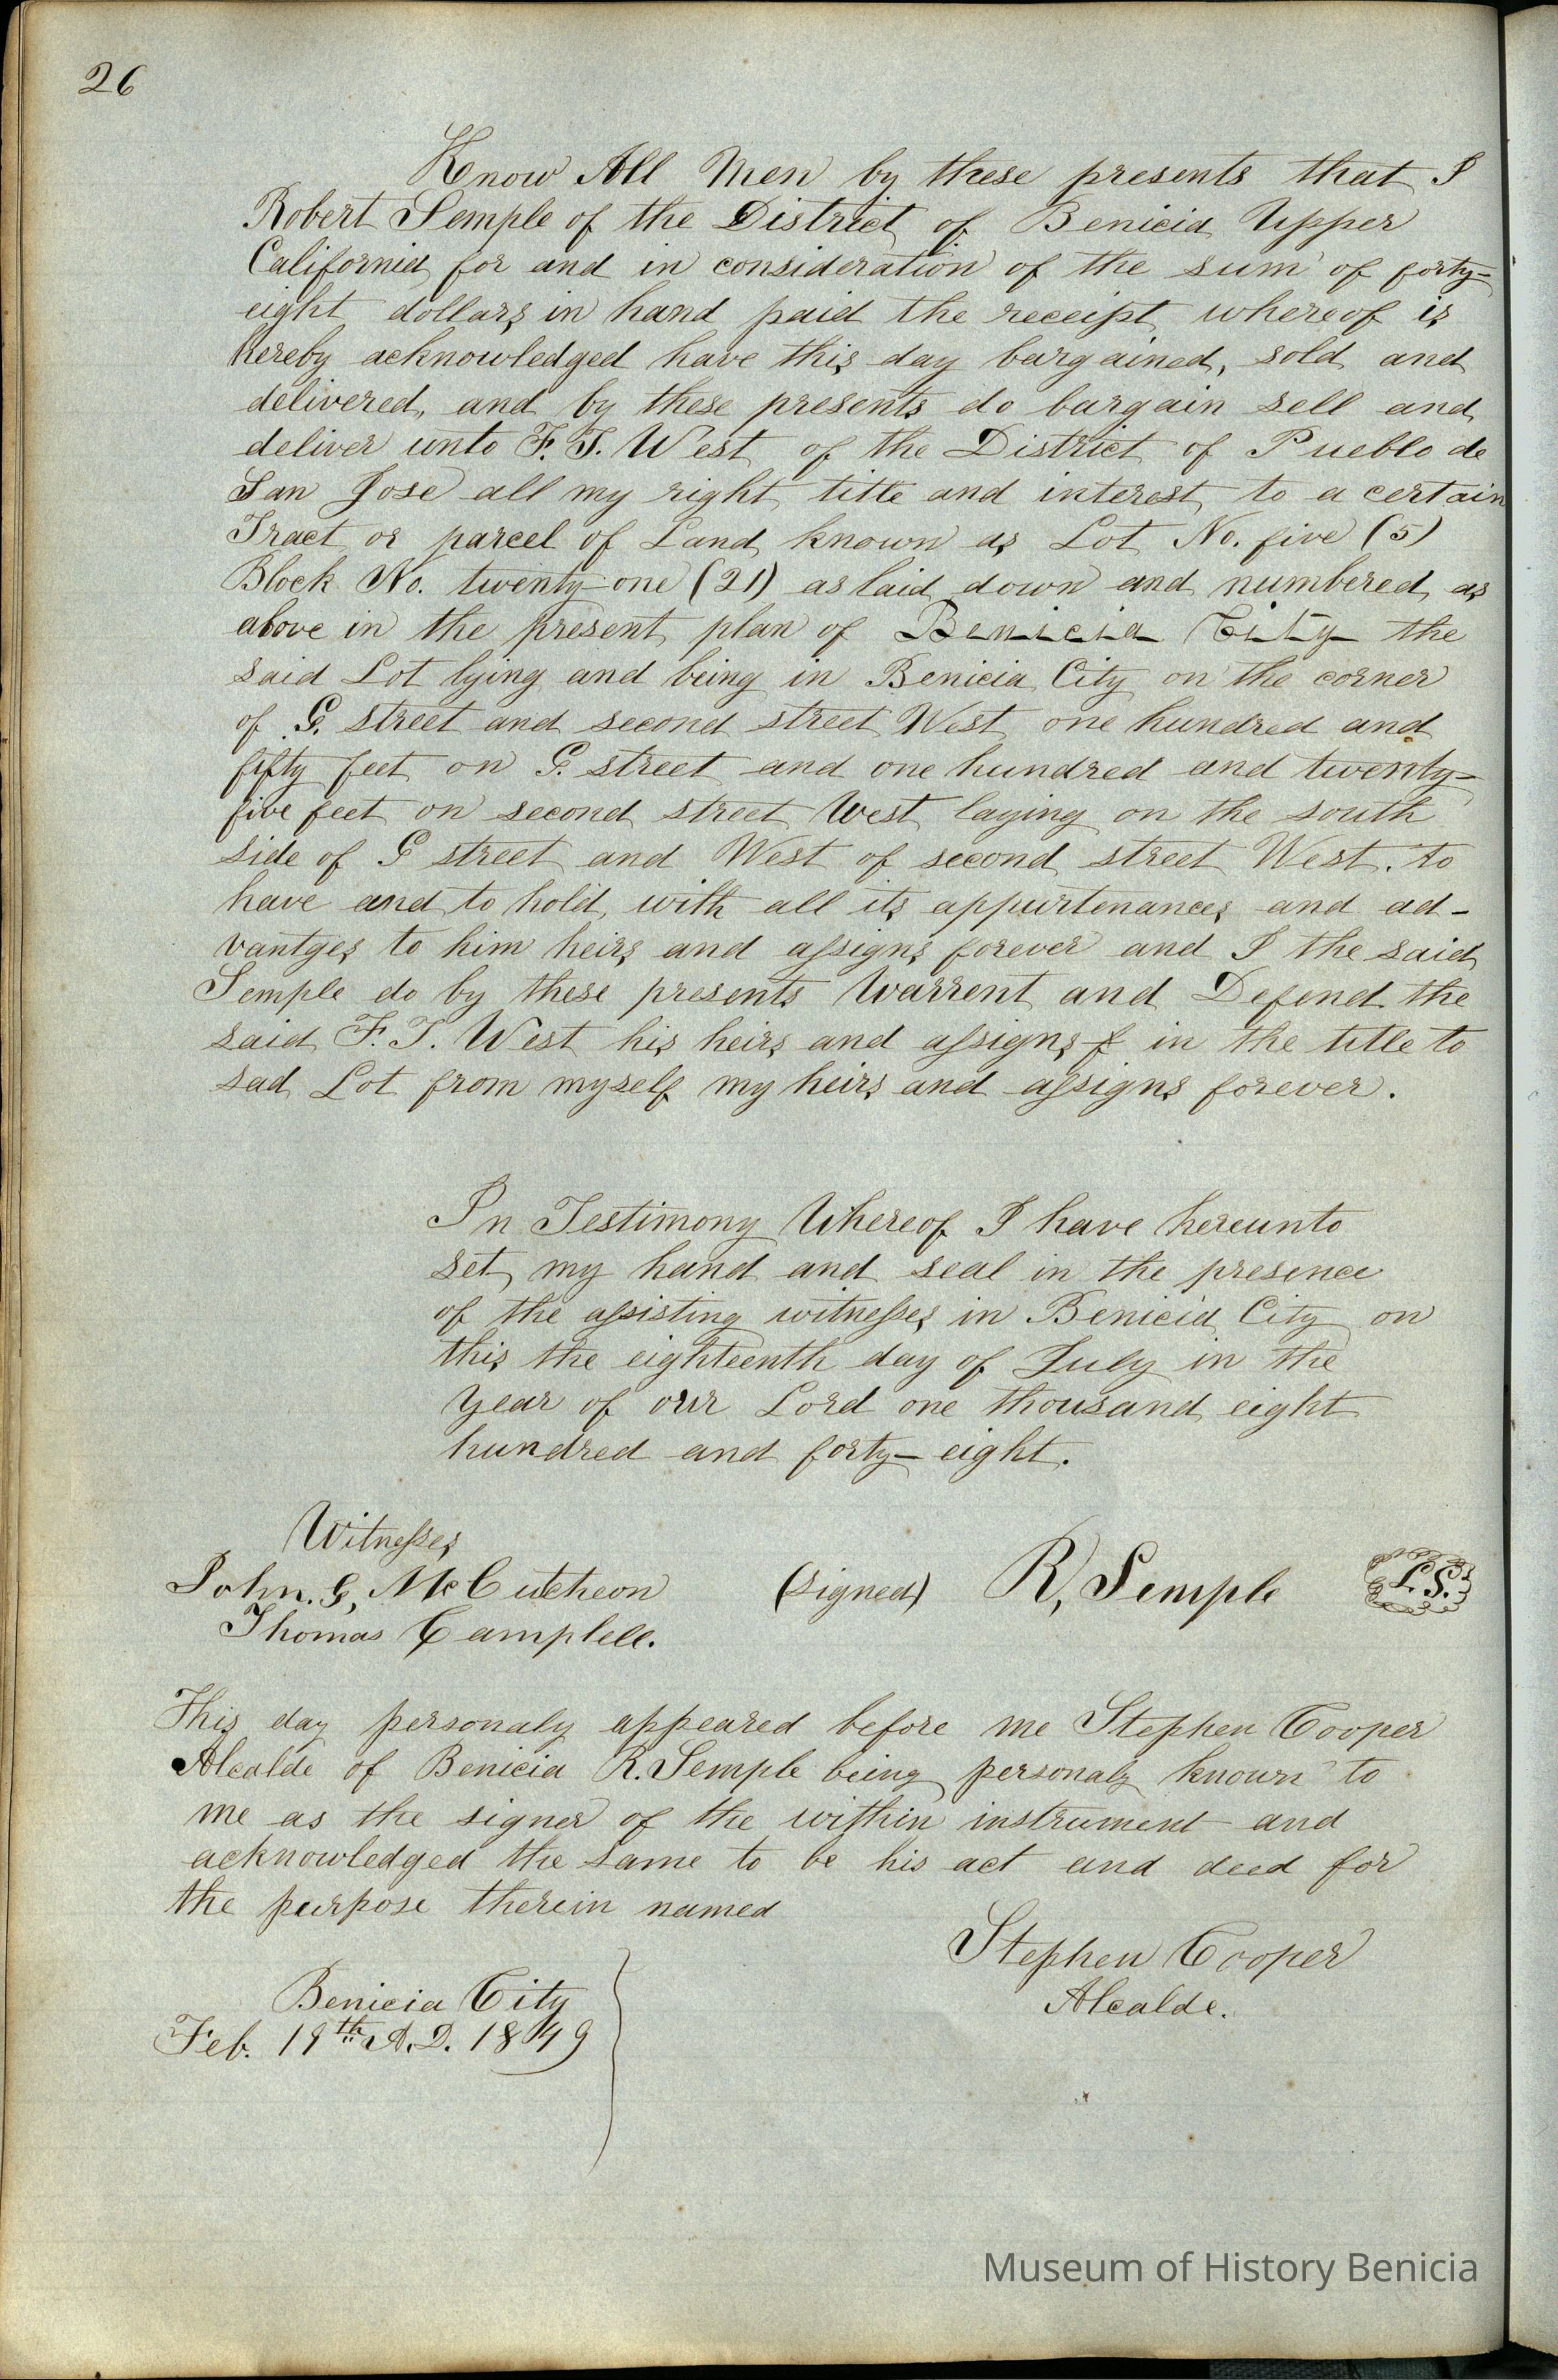 26
Know All Men by these presents that I
Robert Semple of the District of Benicia Upper
California for and in consideration of the sum of forty-
eight dollars in hand paid the receipt whereof is
hereby acknowledged have this day bargained, sold and
delivered, and by these presents do bargain sell and
deliver unto F. T. West of the District of Pueblo de
San Jose all my right title and interest to a certain
Tract or parcel of Land known as Lot No. five (5)
Block No. twenty-one (21) as laid down and numbered as
above in the present plan of Benicia City the
said Lot lying and being in Benicia City on the corner
of G. street and second street West one hundred and
fifty feet on G. street and one hundred and twenty-
five feet on second street West laying on the south
side of G street and West of second street West. to
have and to hold, with all its appurtenances and ad-
vantges to him heirs and assigns forever and I the said
Semple do by these presents Warrent and Defend the
said F. T. West his heirs and assigns f in the title to
sad Lot from myself my heirs and assigns forever.
In Testimony Whereof I have hereunto
set my hand and seal in the presence
of the assisting witnesses in Benicia City on
this the eighteenth day of July in the
year of our Lord one thousand eight
hundred and forty-eight.
Witnesses
John. G, McCutcheon (signed) R, Semple L.S.
Thomas Camplell.
This day personaly appeared before me Stephen Cooper
Alcalde of Benicia R. Semple being personaly known to
me as the signer of the within instrument and
acknowledged the same to be his act and deed for
the purpose therein named
Stephen Cooper
Alcalde.
Benicia City
Feb. 19th A.D. 1849
Museum of History Benicia